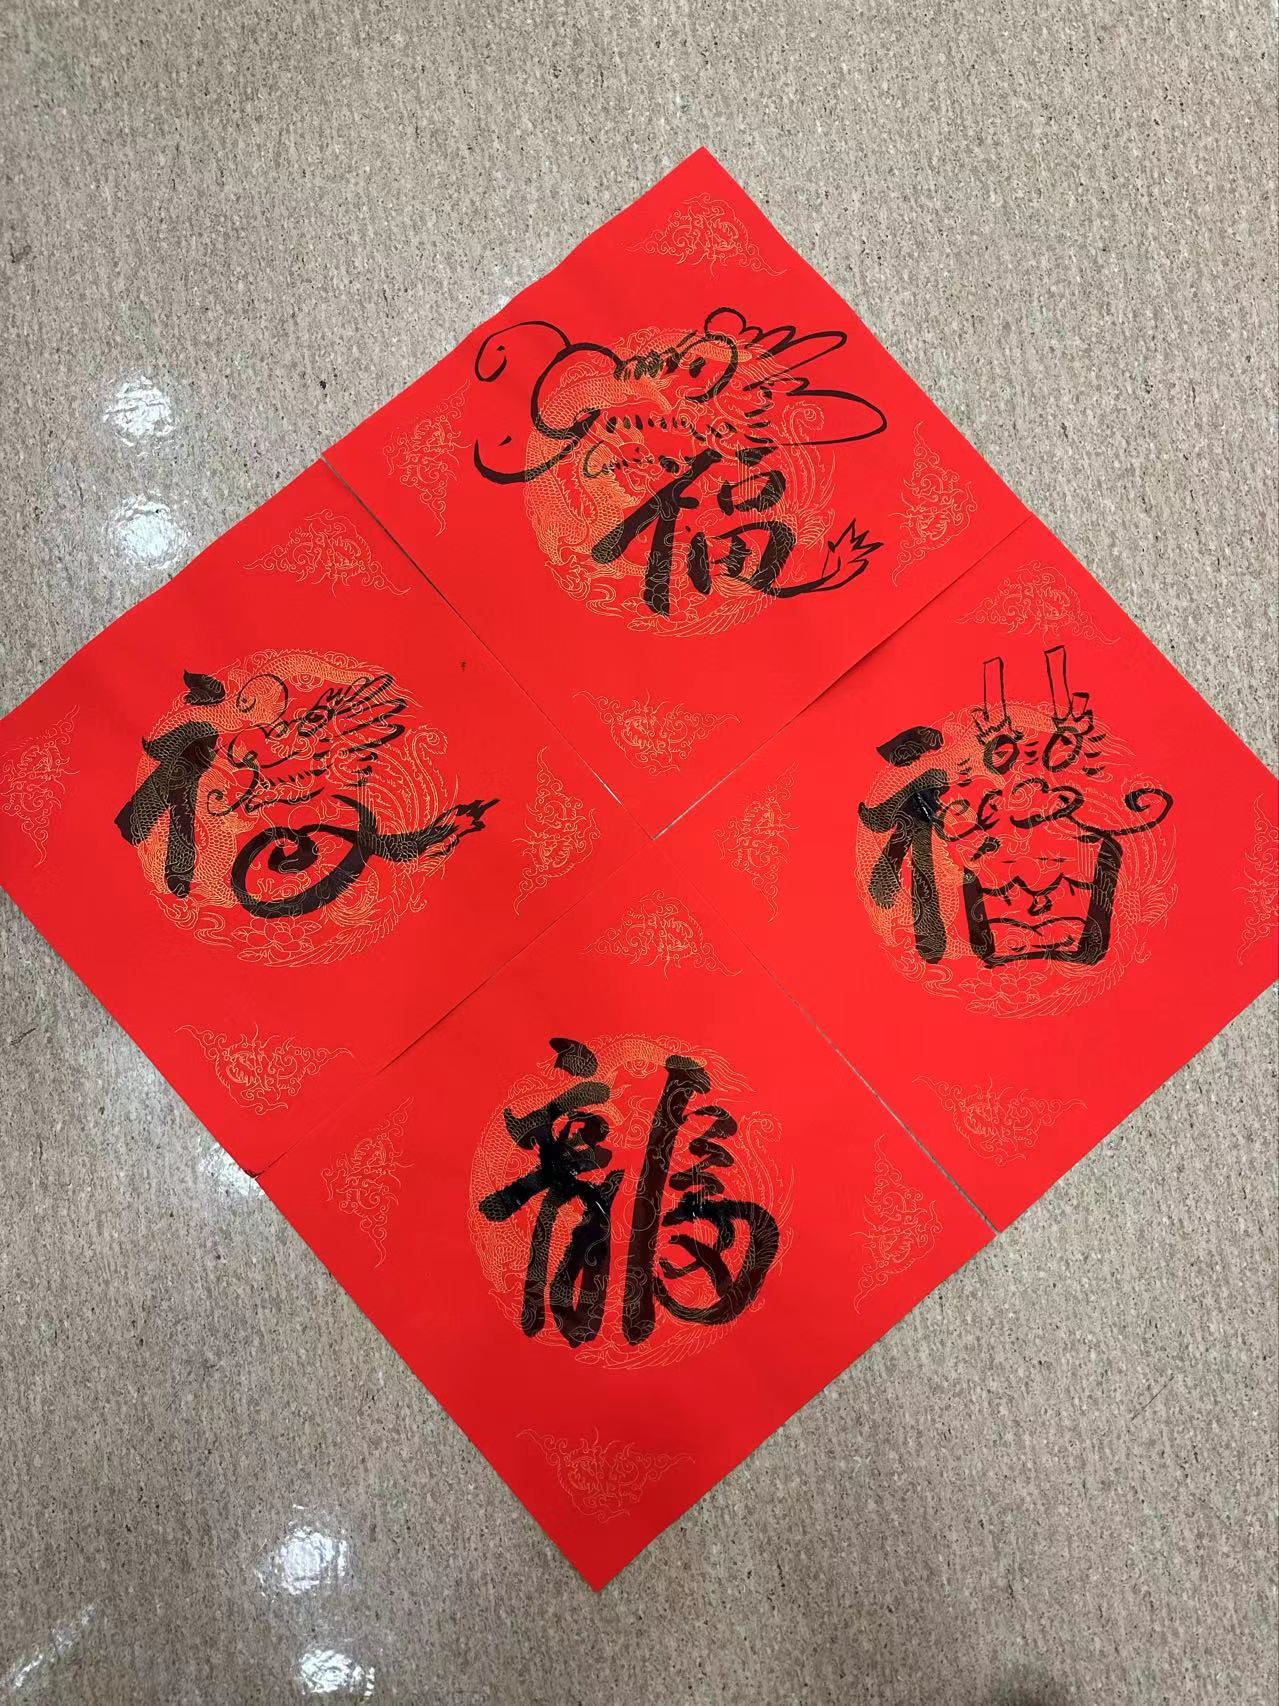 福
福
福
龍